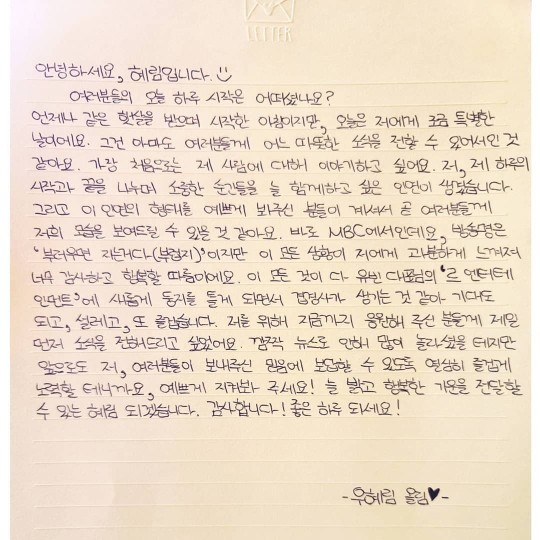 LETTER
안녕하세요, 혜림입니다. ☺
여러분들의 오늘 하루 시작은 어떠셨나요?
언제나 같은 햇살을 받으며 시작한 아침이지만, 오늘은 저에게 조금 특별한
날이에요. 그건 아마도 여러분들께 어느 따뜻한 소식을 전할 수 있어서인 것
같아요. 가장 처음으로는 제 사랑에 대해 이야기하고 싶어요. 저, 제 하루의
시작과 끝을 나누며 소중한 순간들을 늘 함께하고 싶은 인연이 생겼습니다.
그리고 이 인연의 형태를 예쁘게 봐주신 분들이 계셔서 곧 여러분들께
저희 모습을 보여드릴 수 있을 것 같아요. 바로 MBC에서인데요, 방송명은
'부러우면 지는거다(부럽지)'이지만 이 모든 상황이 저에게 과분하게 느껴져
너무 감사하고 행복할 따름이에요. 이 모든 것이 다 유빈 대표님의 '르 엔터테
인먼트'에 새롭게 둥지를 틀게 되면서 겹경사가 생기는 것 같아 기대도
되고, 설레고, 또 즐겁습니다. 저를 위해 지금까지 응원해 주신 분들께 제일
먼저 소식을 전해드리고 싶었어요. 깜짝 뉴스로 인해 많이 놀라셨을 테지만
앞으로도 저, 여러분들이 보내주신 믿음에 보답할 수 있도록 열심히 즐겁게
노력할 테니까요, 예쁘게 지켜봐 주세요! 늘 밝고 행복한 기운을 전달할
수 있는 혜림 되겠습니다. 감사합니다! 좋은 하루 되세요!
-우혜림 올림♥-